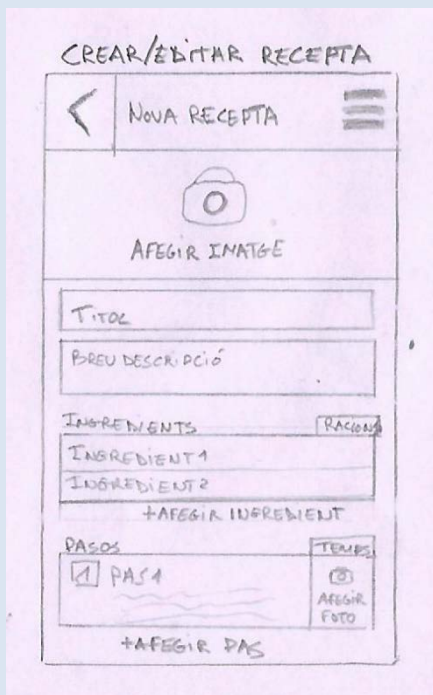 CREAR/EDITAR RECEPTA
NOVA RECEPTA
AFEGIR IMATGE
TITOL
BREU DESCRIPCIÓ
INGREDIENTS RACIONS
INGREDIENT 1
INGREDIENT 2
+AFEGIR INGREDIENT
PASOS TEMPS
1 PAS 1
AFEGIR
FOTO
+AFEGIR PAS